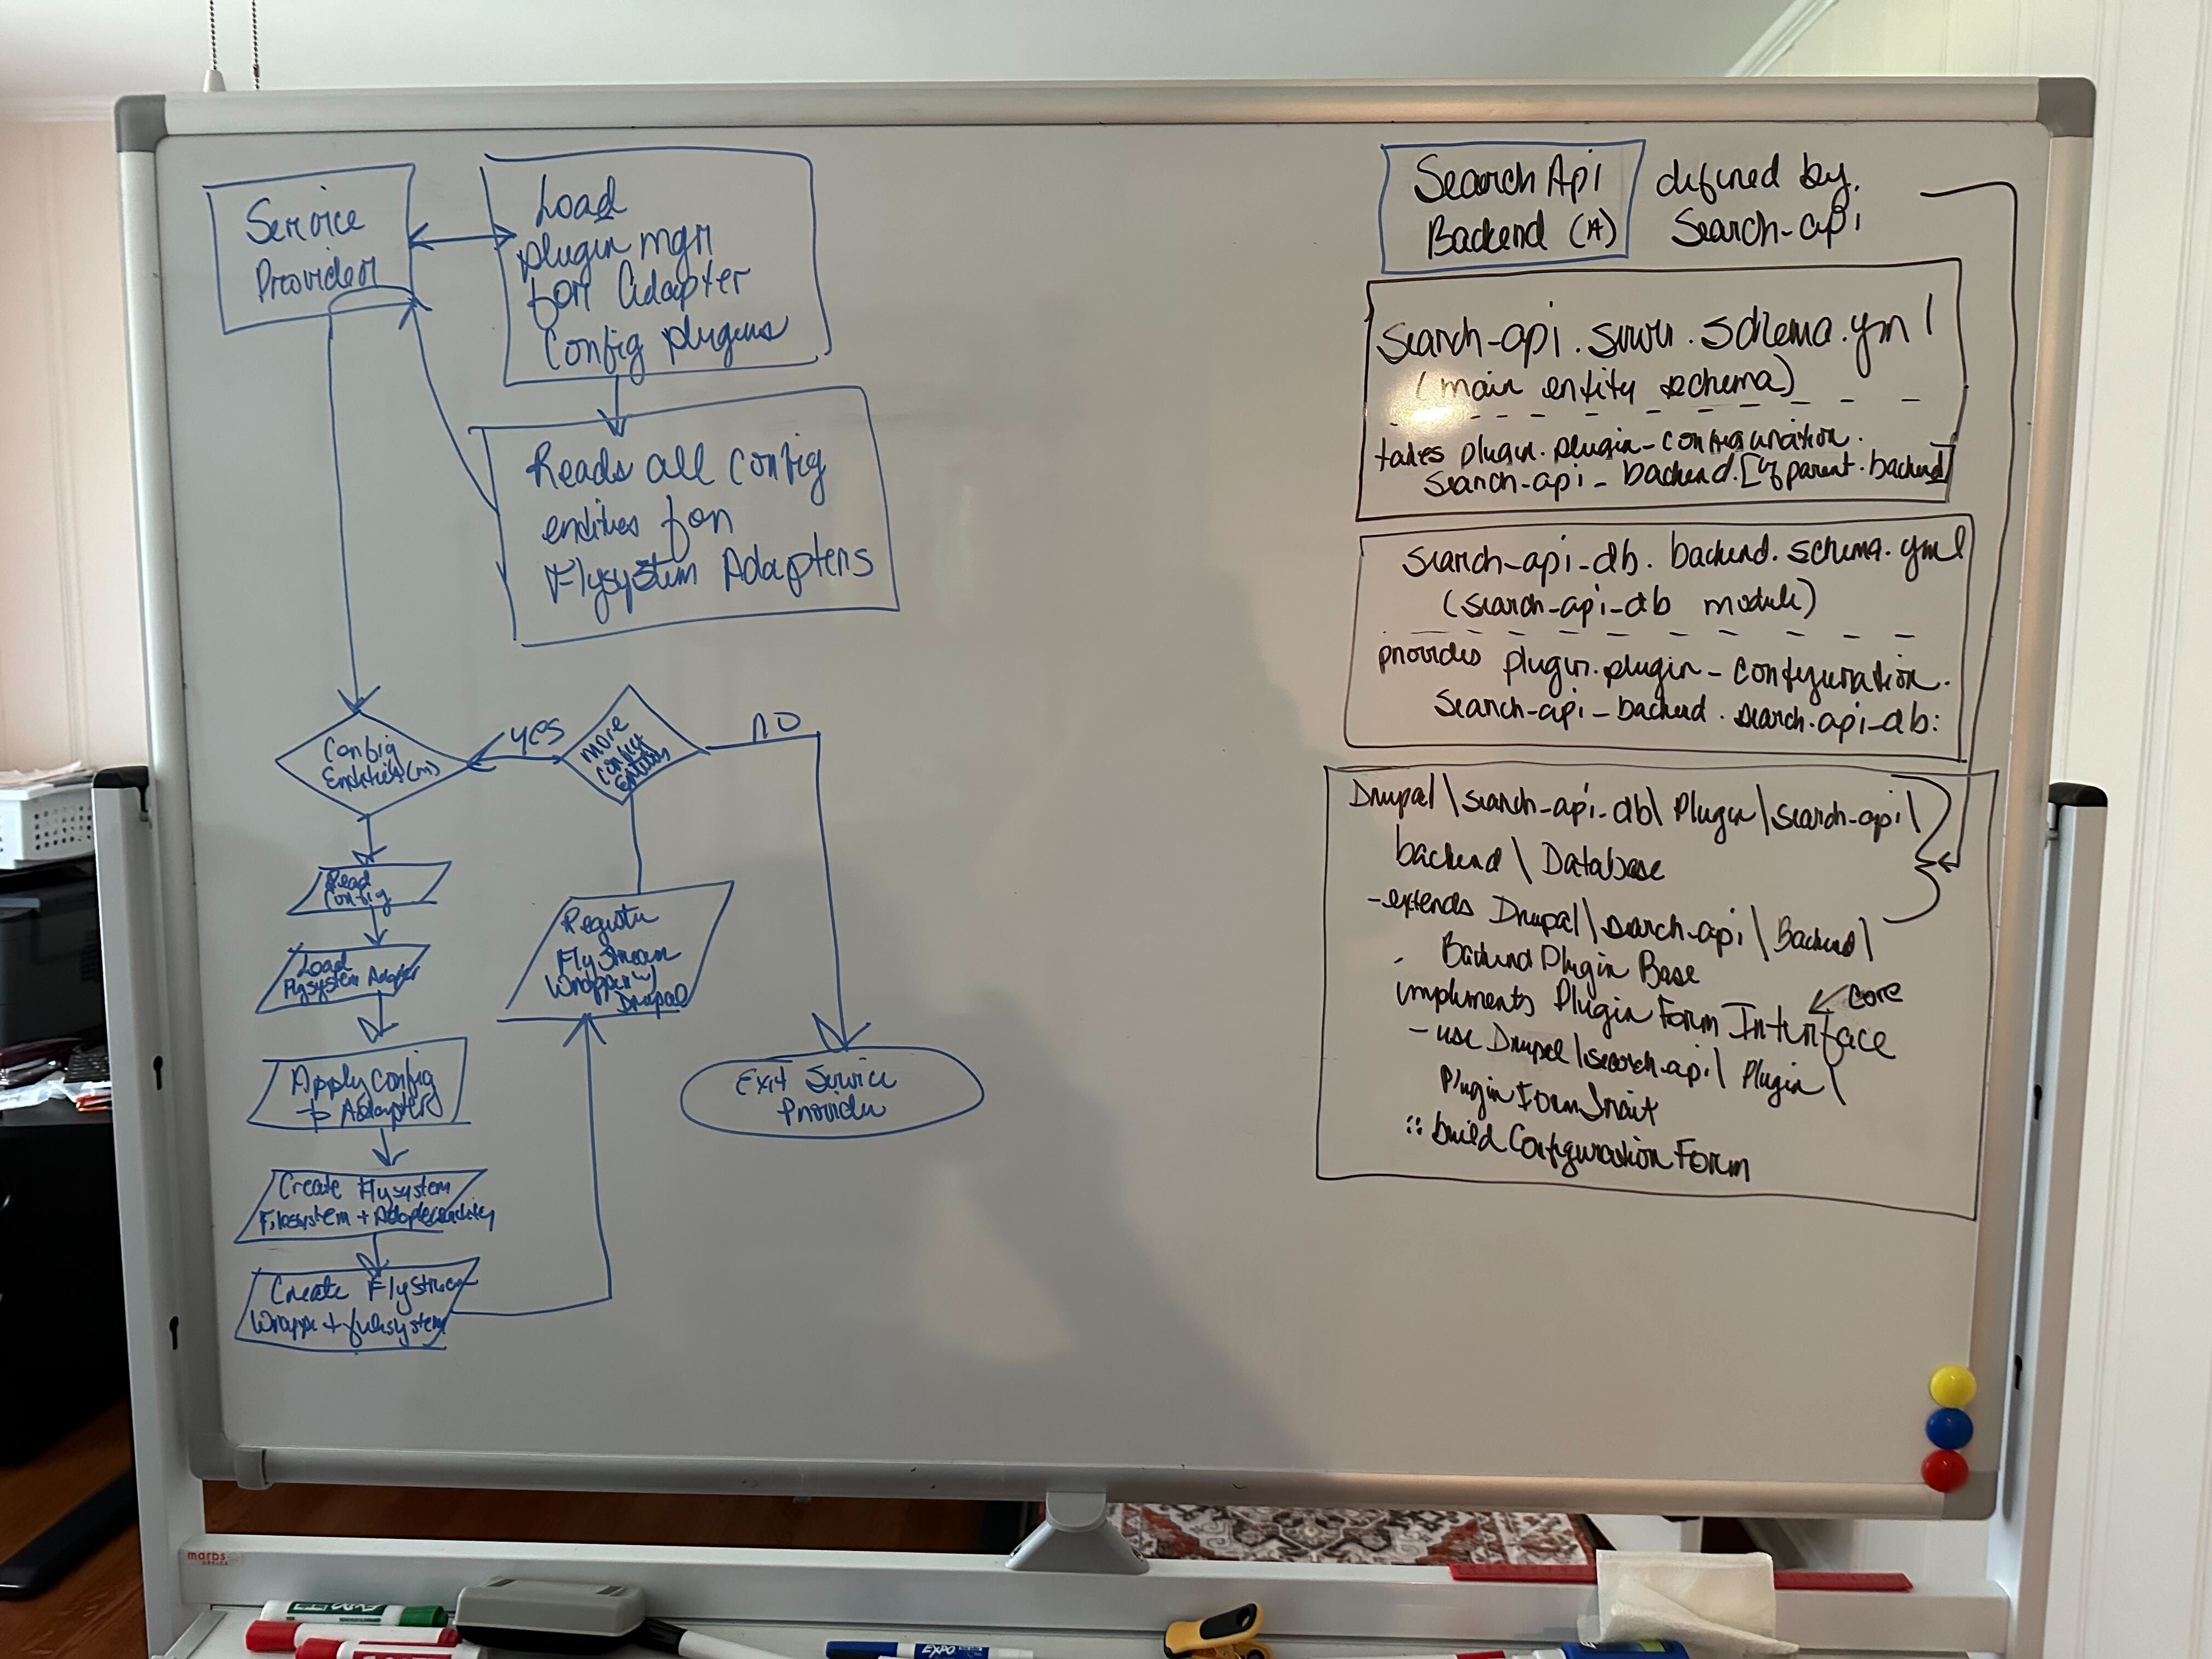 Service
Provider
Load
plugin mgr
for Adapter
Config plugins
Reads all config
entities for
Flysystem Adapters
Config
Entities (m)
yes
more
config
Entities
no
Read
Config
Load
Flysystem Adapter
Apply Config
to Adapter
Create Flysystem
Filesystem +
Create FlyStream
Wrapper + filesystem
Register
FlyStream
Wrapper w/
Drupal
Exit Service
Provider
Search Api
Backend (A)
defined by
Search-api
search-api.server.schema.yml
(main entity schema)
takes plugin.plugin-configuration.
search-api-backend.[%parent.backend]
search-api-db.backend.schema.yml
(search-api-db module)
provides plugin.plugin-configuration.
search-api-backend.search-api-db:
Drupal\search-api-db\Plugin\search-api\
backend\Database
-extends Drupal\search-api\Backend\
Backend Plugin Base
implements Plugin Form Interface
core
-use Drupal\search-api\Plugin\
PluginFormTrait
::buildConfigurationForm
marbs
EXPO